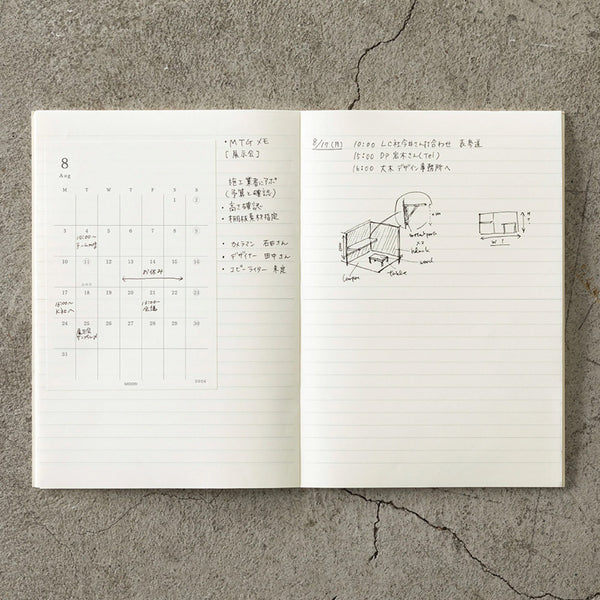 8
Aug
M T W T F S S
1 2
3 4 5 6 7 8 9
16:00〜
10 11 12 13 14 15 16
お休み
17 18 19 20 21 22 23
15:00〜
15:00〜
会議
24 25 26 27 28 29 30
展示会
31
MOON
・MTG メモ
[展示会]
施工業者にアポ
(予算も確認)
・高さ確認
・棚板素材指定
・カメラマン 石田さん
・デザイナー 田中さん
・コピーライター 未定
8/17(月) 10:00 LC社今井さん打合わせ 表参道
15:00 DP宮木さん(Tel)
16:00 大木デザイン事務所へ
black
wood
table